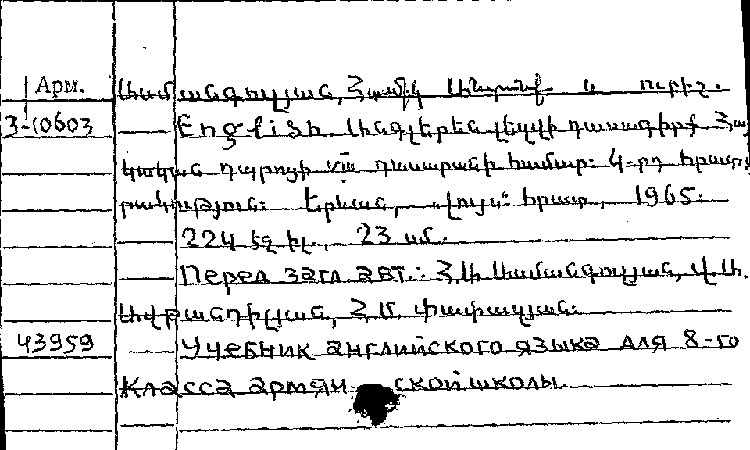 Арм. Ասմանգուլյան, Հայկ և ուրիշ.
3-10603 English Անգլերեն լեզվի դասագիրք Հայ
կական դպրոցի VIII դասարանի համար: 4-րդ հրատ
րակություն: Երևան, „Լույս“ հրատ., 1965:
224 էջ իլ., 23 սմ.
Перед загл. авт.: Հ.Ա. Ասմանգուլյան, Վ.Ա.
Հ.Մ. Փափազյան:
43959 Учебник английского языка для 8-го
класса армянской школы.